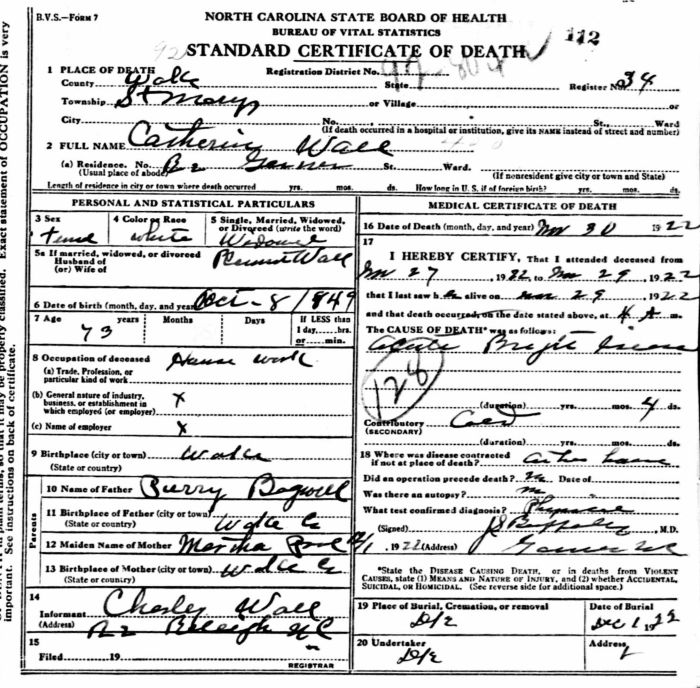 B.V.S.—FORM 7
NORTH CAROLINA STATE BOARD OF HEALTH
BUREAU OF VITAL STATISTICS
STANDARD CERTIFICATE OF DEATH
112
92
1 PLACE OF DEATH
Registration District No.
County Wake State Register No. 34
Township St Marys or Village or
City No. St., Ward
(If death occurred in a hospital or institution, give its NAME instead of street and number)
2 FULL NAME Catherine Wall
(a) Residence. No. R2 Garner St. Ward.
(Usual place of abode) (If nonresident give city or town and State)
Length of residence in city or town where death occurred yrs. mos. ds. How long in U. S. if of foreign birth? yrs. mos. ds.
PERSONAL AND STATISTICAL PARTICULARS
3 Sex 4 Color or Race 5 Single, Married, Widowed, or Divorced (write the word)
white Widowed
5a If married, widowed, or divorced
Husband of
(or) Wife of Wall
6 Date of birth (month, day, and year) Oct - 8 1849
7 Age years Months Days If LESS than
73 1 day, hrs.
or min.
8 Occupation of deceased House work
(a) Trade, Profession, or
particular kind of work
(b) General nature of industry,
business, or establishment in
which employed (or employer) x
(c) Name of employer x
9 Birthplace (city or town) Wake
(State or country)
Parents
10 Name of Father Perry Bagwell
11 Birthplace of Father (city or town)
(State or country) Wake Co
12 Maiden Name of Mother Martha
13 Birthplace of Mother (city or town) Wake Co
(State or country)
14
Informant Chesley Wall
(Address) R2 Raleigh NC
15
Filed 19 REGISTRAR
MEDICAL CERTIFICATE OF DEATH
16 Date of Death (month, day, and year) Nov 30 1922
17
I HEREBY CERTIFY, That I attended deceased from
Nov 27, 1922 to Nov 29, 1922
that I last saw h alive on Nov 29, 1922
and that death occurred, on the date stated above, at 4 A m.
The CAUSE OF DEATH* was as follows:
Acute Bright disease
128
(duration) yrs. mos. 4 ds.
Contributory Cold
(SECONDARY)
(duration) yrs. mos. ds.
18 Where was disease contracted
if not at place of death?
Did an operation precede death? No Date of
Was there an autopsy? no
What test confirmed diagnosis?
(Signed) M.D.
12/1, 1922 (Address) Garner NC
*State the DISEASE CAUSING DEATH, or in deaths from VIOLENT
CAUSES, state (1) MEANS AND NATURE OF INJURY, and (2) whether ACCIDENTAL,
SUICIDAL, or HOMICIDAL. (See reverse side for additional space.)
19 Place of Burial, Cremation, or removal Date of Burial
Dec 1 1922
20 Undertaker Address
important. See instructions on back of certificate.
properly classified. Exact statement of OCCUPATION is very